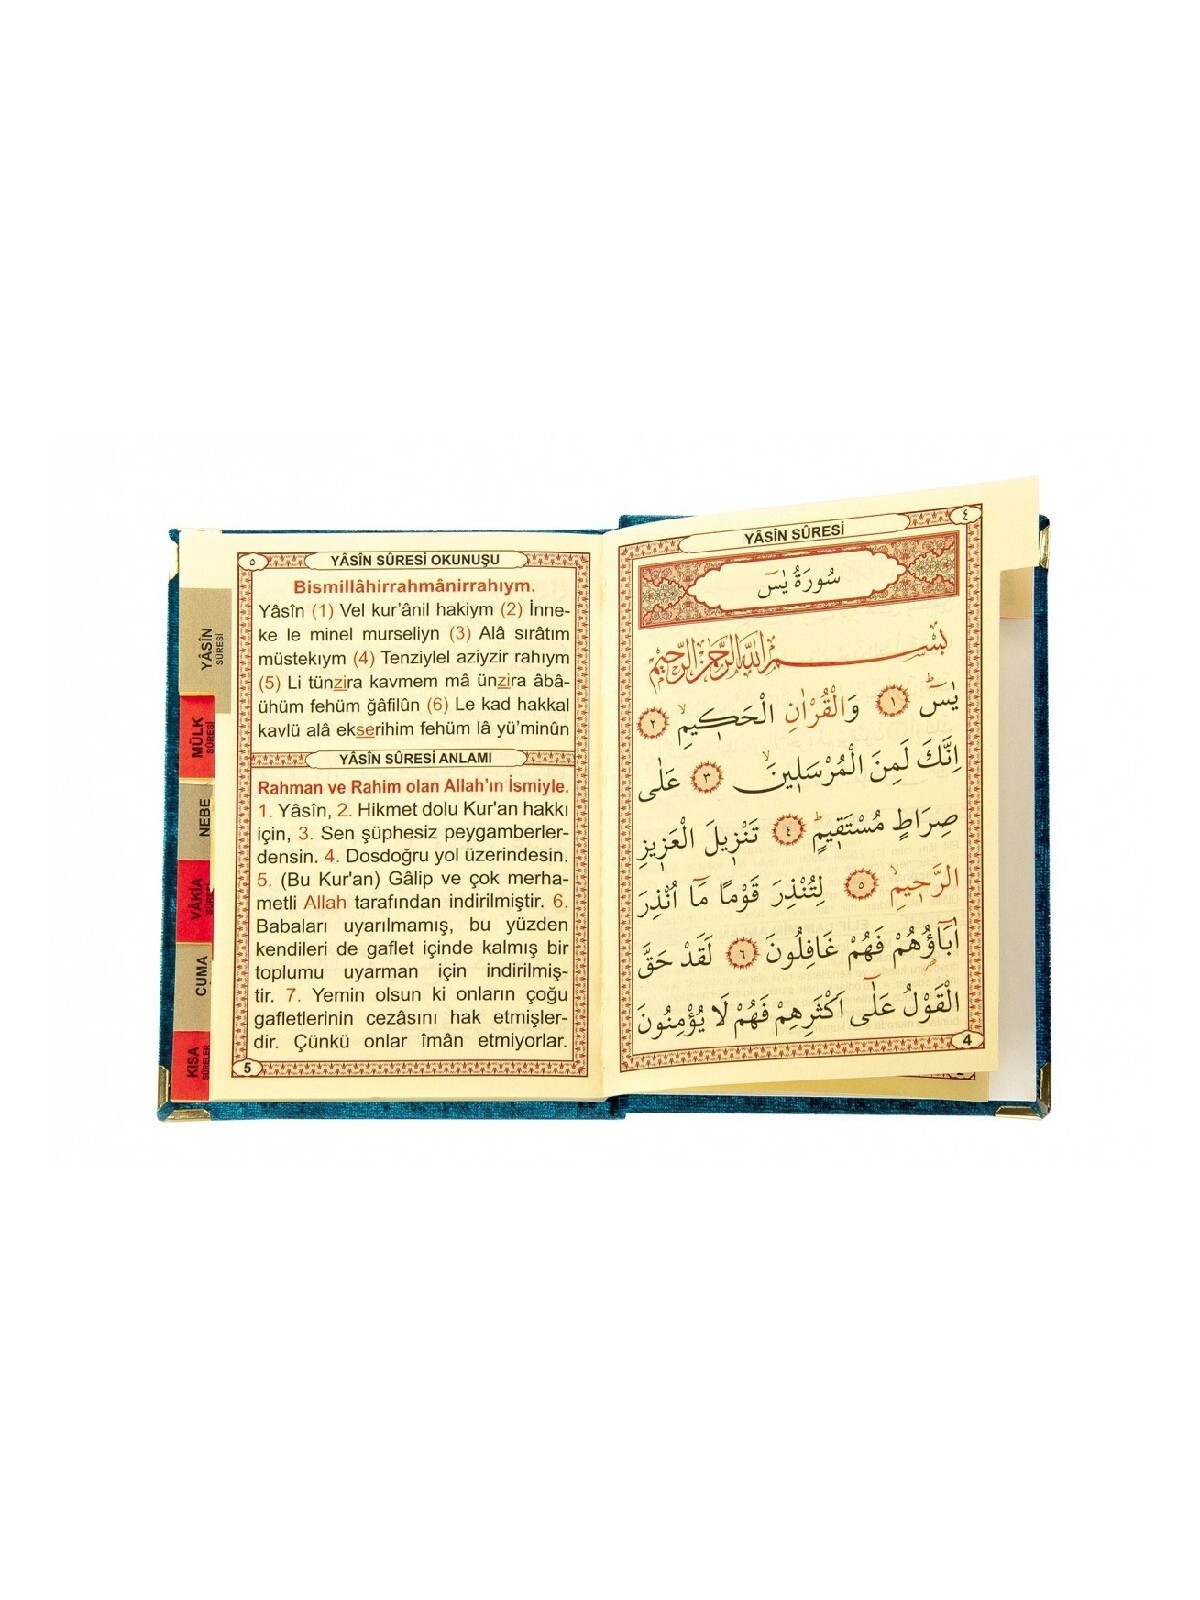 YÂSİN
SÛRESİ
MÜLK
SÛRESİ
NEBE
VÂKIA
CUMA
KISA
SÛRELER
٥
YÂSÎN SÛRESİ OKUNUŞU
Bismillâhirrahmânirrahıym.
Yâsîn (1) Vel kur'ânil hakiym (2) İnne-
ke le minel murseliyn (3) Alâ sırâtım
müstekıym (4) Tenziylel aziyzir rahıym
(5) Li tünzira kavmem mâ ünzira âbâ-
ühüm fehüm ğafilûn (6) Le kad hakkal
kavlü alâ ekserihim fehüm lâ yü'minûn
YÂSÎN SÛRESİ ANLAMI
Rahman ve Rahim olan Allah'ın İsmiyle.
1. Yâsîn, 2. Hikmet dolu Kur'an hakkı
için, 3. Sen şüphesiz peygamberler-
densin. 4. Dosdoğru yol üzerindesin.
5. (Bu Kur'an) Gâlip ve çok merha-
metli Allah tarafından indirilmiştir. 6.
Babaları uyarılmamış, bu yüzden
kendileri de gaflet içinde kalmış bir
toplumu uyarman için indirilmiş-
tir. 7. Yemin olsun ki onların çoğu
gafletlerinin cezâsını hak etmişler-
dir. Çünkü onlar îmân etmiyorlar.
5
٤
YÂSİN SÛRESİ
سُورَةُ يٰسٓ
بِسْمِ اللّٰهِ الرَّحْمٰنِ الرَّحِيمِ
يٰسٓ ﴿١﴾ وَالْقُرْاٰنِ الْحَكِيمِۙ ﴿٢﴾
اِنَّكَ لَمِنَ الْمُرْسَلِينَۙ ﴿٣﴾ عَلٰى
صِرَاطٍ مُسْتَقِيمٍۜ ﴿٤﴾ تَنْزِيلَ الْعَزِيزِ
الرَّحِيمِۙ ﴿٥﴾ لِتُنْذِرَ قَوْمًا مَٓا اُنْذِرَ
اٰبَٓاؤُهُمْ فَهُمْ غَافِلُونَ ﴿٦﴾ لَقَدْ حَقَّ
الْقَوْلُ عَلٰٓى اَكْثَرِهِمْ فَهُمْ لَا يُؤْمِنُونَ
4